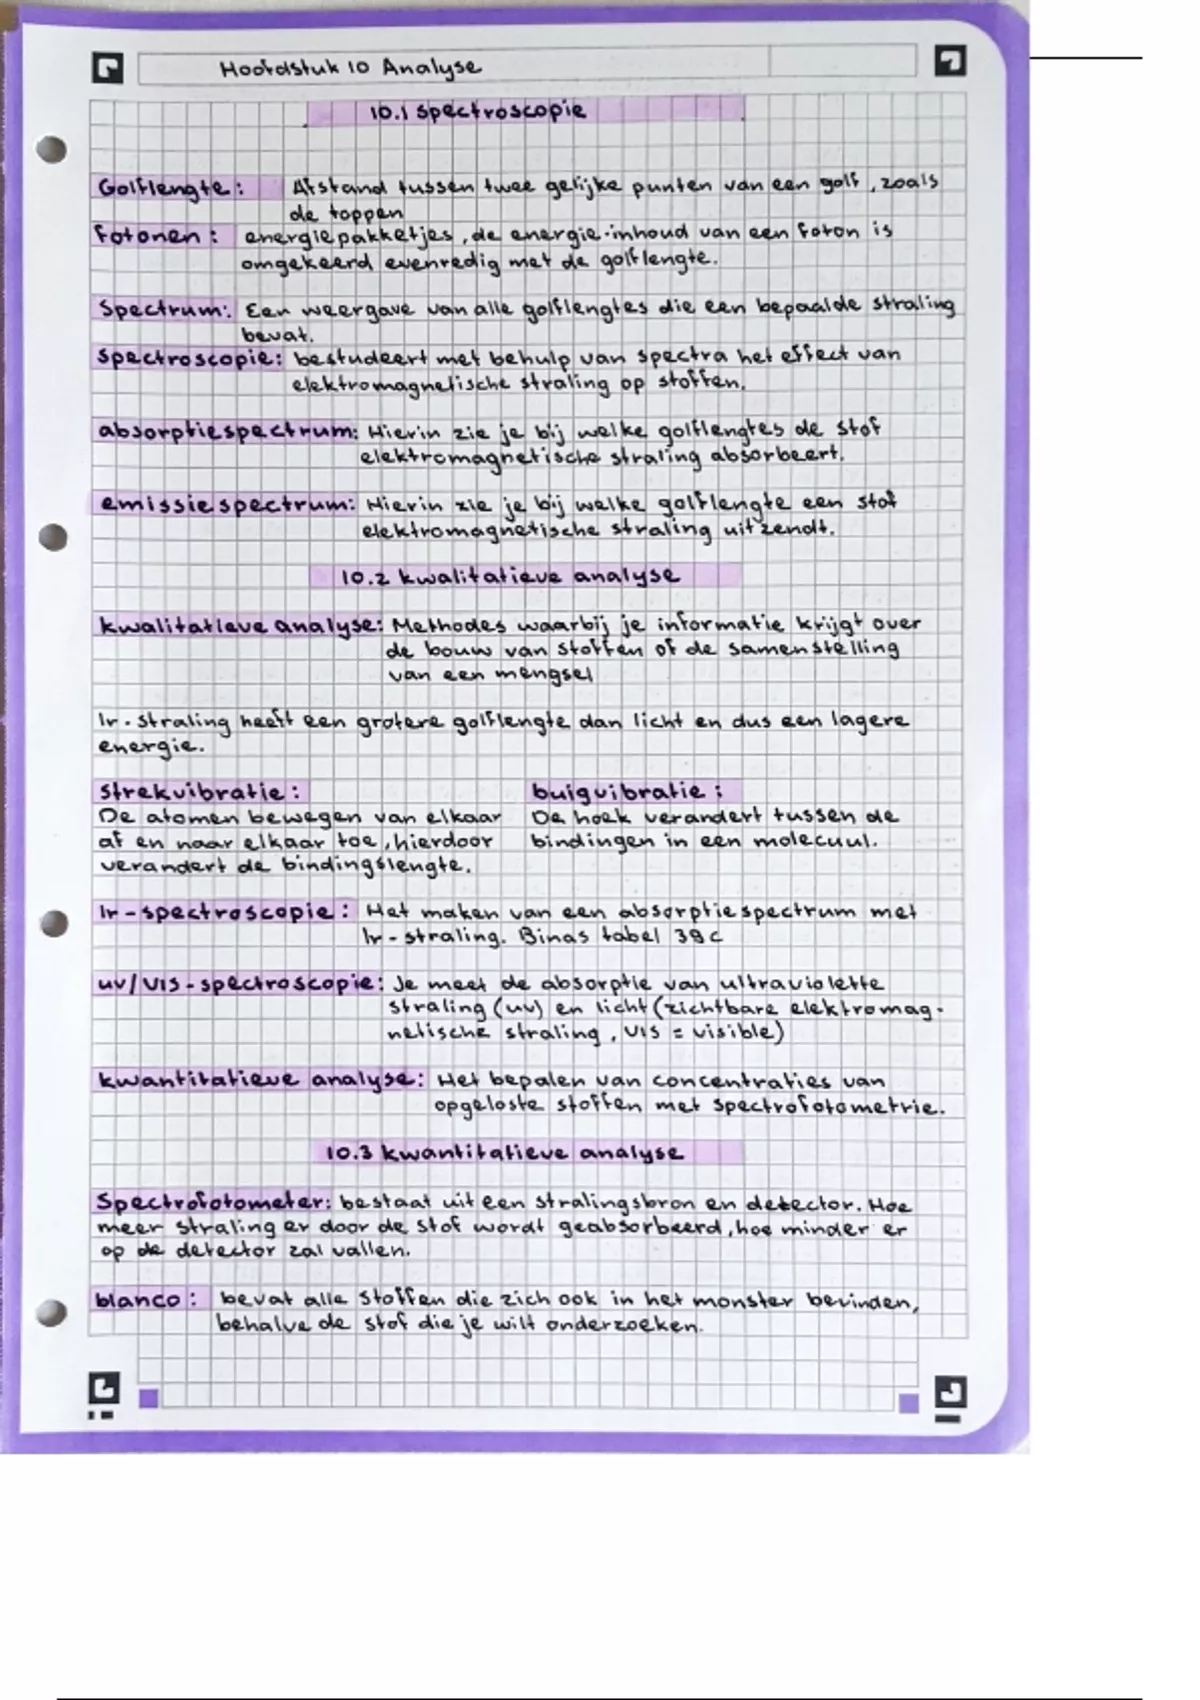 Hoofdstuk 10 Analyse
10.1 Spectroscopie
Golflengte: Afstand tussen twee gelijke punten van een golf, zoals
de toppen
Fotonen: energiepakketjes, de energie-inhoud van een foton is
omgekeerd evenredig met de golflengte.
Spectrum: Een weergave van alle golflengtes die een bepaalde straling
bevat.
Spectroscopie: bestudeert met behulp van spectra het effect van
elektromagnetische straling op stoffen.
absorptiespectrum: Hierin zie je bij welke golflengtes de stof
elektromagnetische straling absorbeert.
emissiespectrum: Hierin zie je bij welke golflengte een stof
elektromagnetische straling uitzendt.
10.2 kwalitatieve analyse
kwalitatieve analyse: Methodes waarbij je informatie krijgt over
de bouw van stoffen of de samenstelling
van een mengsel
Ir-straling heeft een grotere golflengte dan licht en dus een lagere
energie.
Strekvibratie: buigvibratie:
De atomen bewegen van elkaar De hoek verandert tussen de
af en naar elkaar toe, hierdoor bindingen in een molecuul.
verandert de bindingslengte.
Ir-spectroscopie: Het maken van een absorptiespectrum met
Ir-straling. Binas tabel 39c
uv/VIS-spectroscopie: Je meet de absorptie van ultraviolette
straling (uv) en licht (zichtbare elektromag-
netische straling, VIS = visible)
kwantitatieve analyse: Het bepalen van concentraties van
opgeloste stoffen met spectrofotometrie.
10.3 kwantitatieve analyse
Spectrofotometer: bestaat uit een stralingsbron en detector. Hoe
meer straling er door de stof wordt geabsorbeerd, hoe minder er
op de detector zal vallen.
blanco: bevat alle stoffen die zich ook in het monster bevinden,
behalve de stof die je wilt onderzoeken.